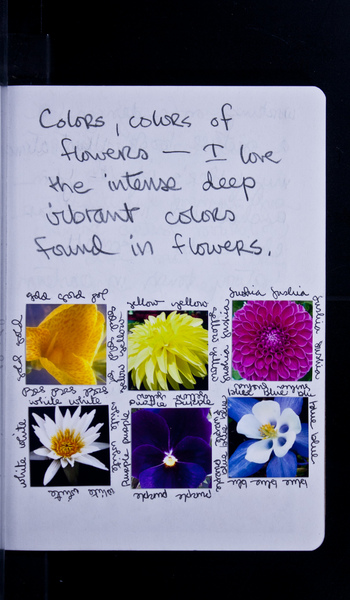 Colors, colors of
flowers — I love
the intense deep
vibrant colors
found in flowers.
gold gold gold
gold gold
gold gold gold
yellow yellow
yellow yellow
yellow yellow
fushia fushia
fushia fushia
fushia fushia
white white
white white
white white
white white
purple purple
purple purple
purple purple
purple purple
blue blue blue
blue blue
blue blue
blue blue blue